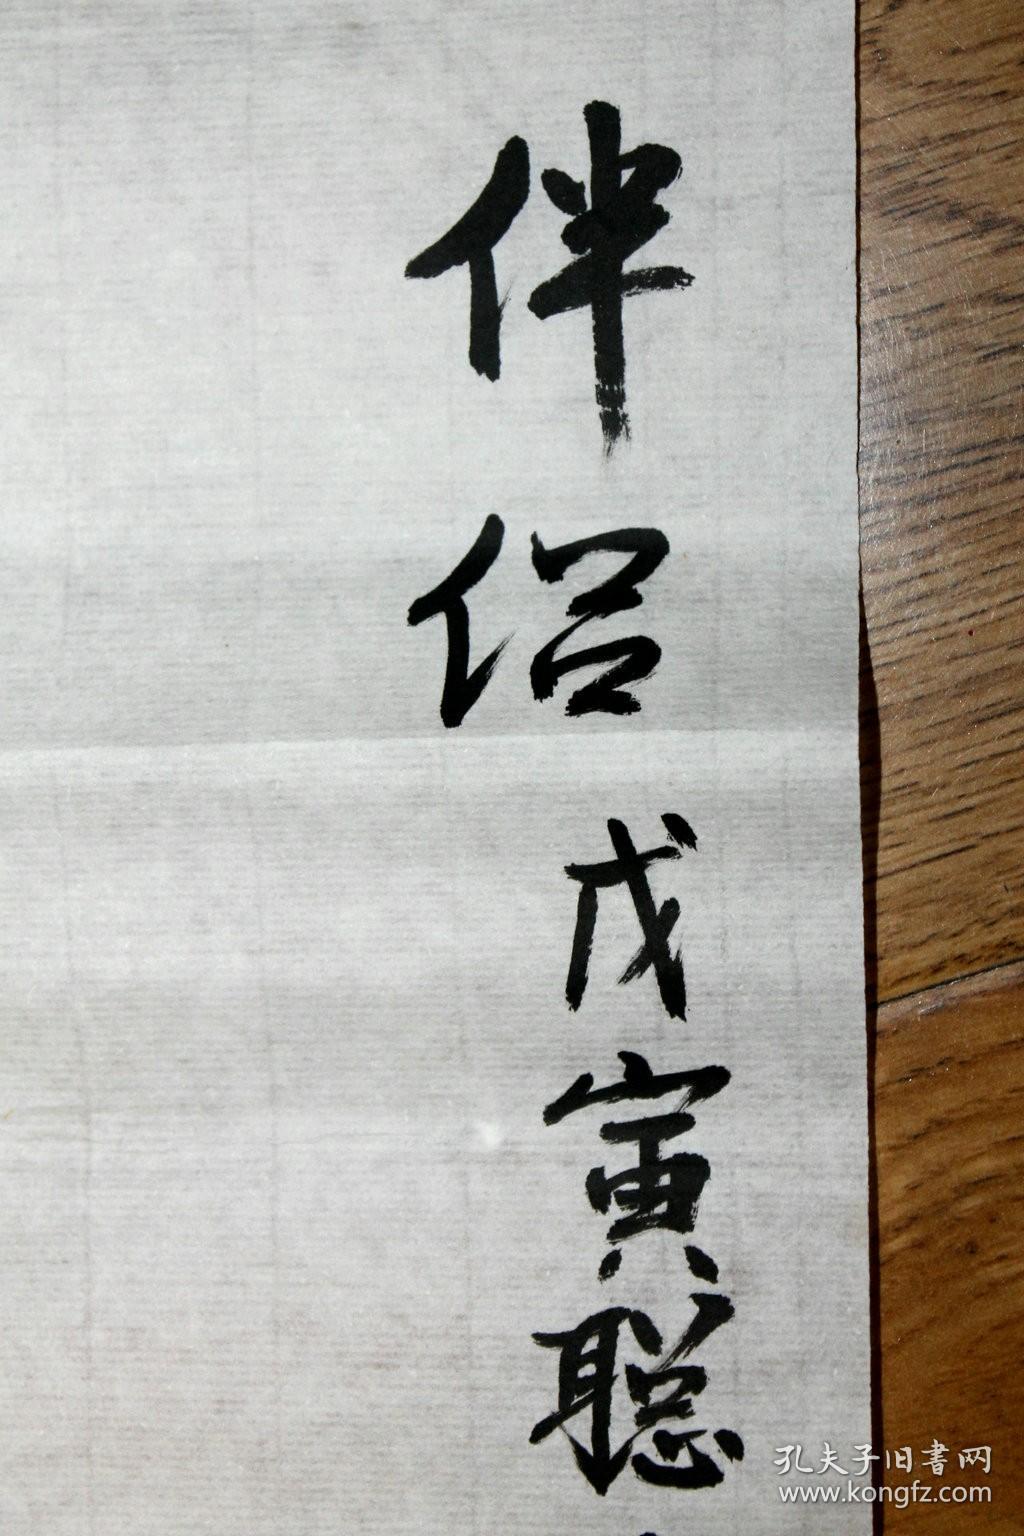 伴侣
戊寅聪
孔夫子旧書网
www.kongfz.com